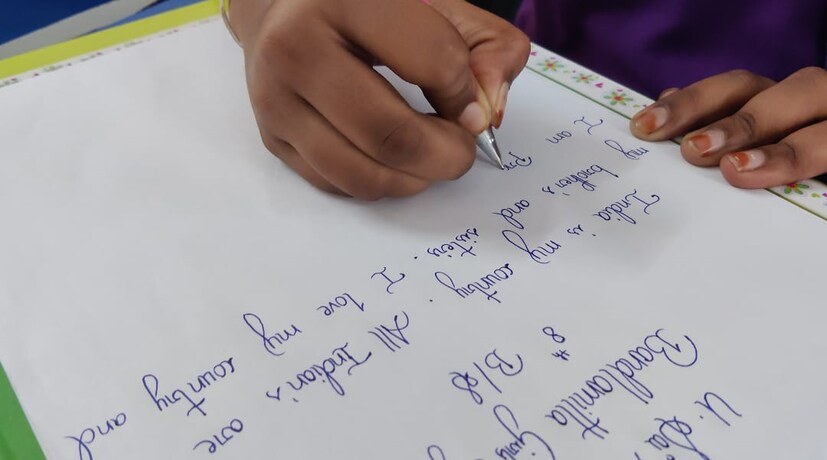 U.
Bandlamitta
8th B/8
India is my country. All Indian's are
my brother's and sisters. I love my country and
I am